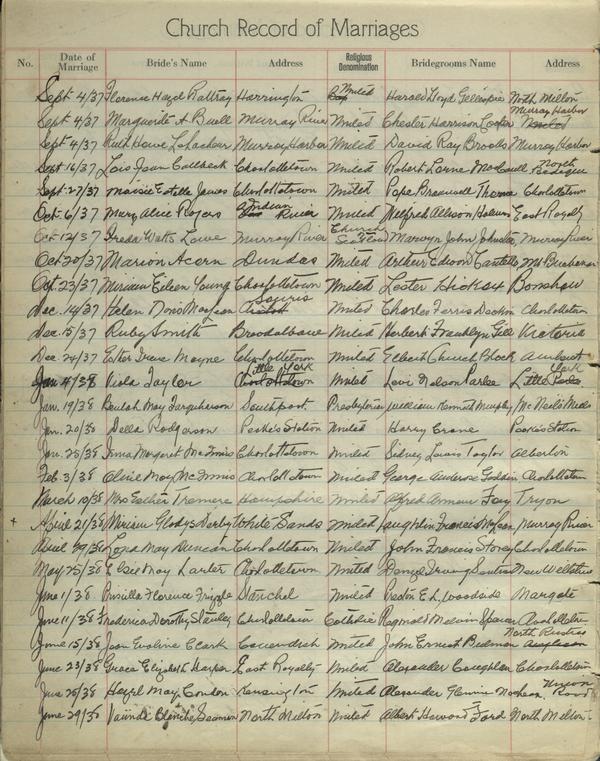 Church Record of Marriages
No. Date of Marriage Bride's Name Address Religious Denomination Bridegrooms Name Address
Sept 4/37 Florence Hazel Rattray Harrington United Harold Lloyd Gillespie North Milton
Sept 4/37 Marguerite A Buell Murray River United Chester Harrison Murray Harbor
Sept 4/37 Ruth Howe Murray Harbor United David Ray Brooks Murray Harbor
Sept 16/37 Lois Jean Callbeck Charlottetown United Robert Lorne North Bedeque
Sept 27/37 Maisie Estelle James Charlottetown United Pope Bramwell Charlottetown
Oct 6/37 Mary Alice Rogers Indian River United Wilfred Allison East Royalty
Oct 12/37 Freda Watts Lowe Murray River Church Scotland Marwyn John Johnston Murray River
Oct 20/37 Marion Acern Dundas United Arthur Edison Mt Buchanan
Oct. 23/37 Miriam Eileen Young Charlottetown United Lester Hickox Bonshaw
Dec. 14/37 Helen Doris MacLean Souris United Charles Ferris Deckin Charlottetown
Dec. 15/37 Ruby Smith Breadalbane United Herbert Franklyn Gill Victoria
Dec 24/37 Ester Irene Mayne Charlottetown United Elbert Church Block Amherst
Jan 4/38 Viola Taylor Little York Charlottetown United Levi Nelson Parlee Little York
Jan. 19/38 Beulah May Farquharson Southport Presbyterian William Kenneth Murphy McNeills Mills
Jan. 20/38 Della Rodgerson Peake's Station United Harry Crane Peakes Station
Jan 25/38 Irma Margaret McInnis Charlottetown United Sidney Louis Taylor Alberton
Feb 3/38 Alice May McInnis Charlottetown United George Anderson Charlottetown
March 10/38 Mrs Esther Hampshire United Alfred Fay Tryon
+ April 21/38 Miriam Gladys Derby White Sands United Laughlin Francis McLean Murray River
April 29/38 Lora May Duncan Charlottetown United John Francis Storey Charlottetown
May 25/38 Elsie May Larter Charlottetown United Irving New Wiltshire
June 1/38 Priscilla Florence Frizzle Darchel United Preston E. L. Woodside Margate
June 11/38 Frederica Dorothy Stanley Charlottetown Catholic Reginald Melvin Spencer Charlottetown
June 15/38 Jean Evoline Clark Cavendish United John Ernest North Rustico
June 23/38 Grace Elizabeth Harper East Royalty United Alexander Coughlan Charlottetown
June 25/38 Hazel May Condon Kensington United Alexander Union Road
June 29/38 Blanche Seaman North Milton United Albert Howard Ford North Milton